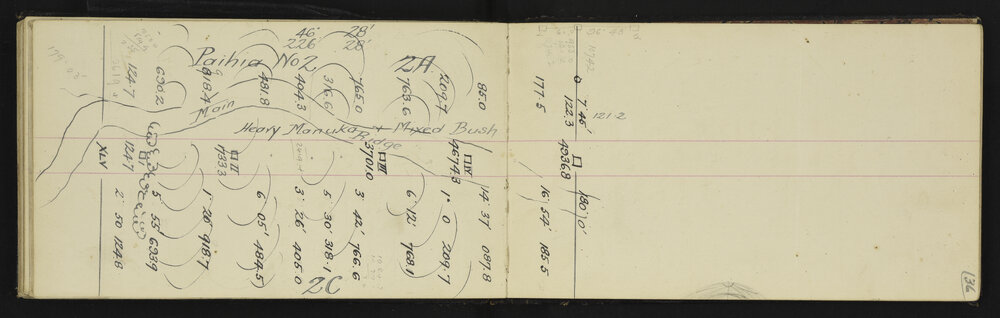 46° 28'
226° 28'
Paihia No 2
2A
Main
Heavy Manuka + Mixed Bush
Ridge
124.7
630.2
918.4
481.8
404.3
316.6
765.0
763.6
209.7
85.0
XLV
124.7
II
733.3
III
3701.0
IV
4674.3
2° 50 124.8
5 55' 633.9
1° 26' 918.7
6 05' 484.5
3° 26' 405.0
5 30' 318.1
3 42' 766.6
6 12' 768.1
1° 0 209.7
14° 37 087.8
2C
177.5
16° 54' 185.5
7° 45'
122.3
121.2
4936.8
180° 0'
36